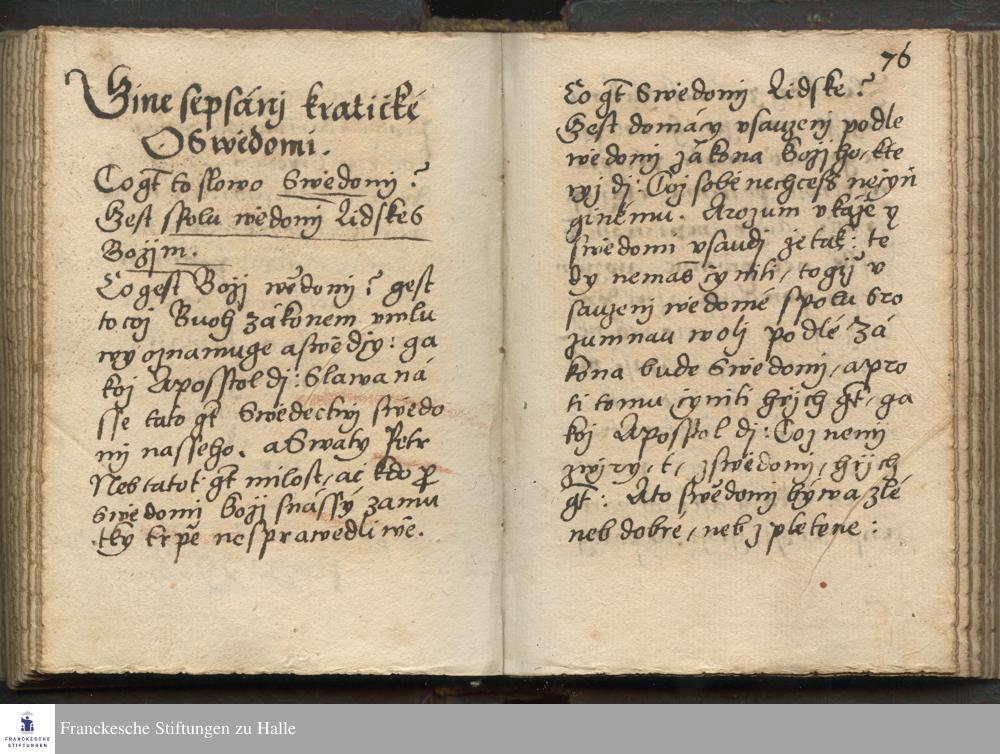 Gine sepsánj kratičké
O Swědomi.
Co gt to slowo Swědomj?
Gest spolu wědomj Lidske s
Bozjm.
Co gest Bozj wědomj? gest
to coz Buoh zákonem vmlu
wy oznamuge a swědčy: ga
koz Aposstol dj: Slawa ná
sse tato gt Swědectwj swědo
mj nasseho. a Swaty Petr
Neb tatot gt milost, ač kdo pro
swědomi bozj snássý zamu
tky trpě nesprawedliwě.
76
Co gt Swědomj Lidske?
Gest domácy vsauzenj podle
wědomj zákona božjho, kte
ryž dj: Což sobě nechcess nečyń
ginému. A rozum vkáže y
swědomi vsaudj že tak: te
dy nemáš čyniti, to gižj v
sauzenj wědomé spolu s ro
zumnau wolj podlé zá
kona bude Swědomj, a pro
ti tomu čyniti hřjch gt, ga
koz Aposstol dj: Coz nenj
z wjry, t, z swědomj, hřjch
gt: A to swědomj býwa zlé
neb dobre, neb zpletene:
Franckesche Stiftungen zu Halle
FRANCKESCHE
STIFTUNGEN